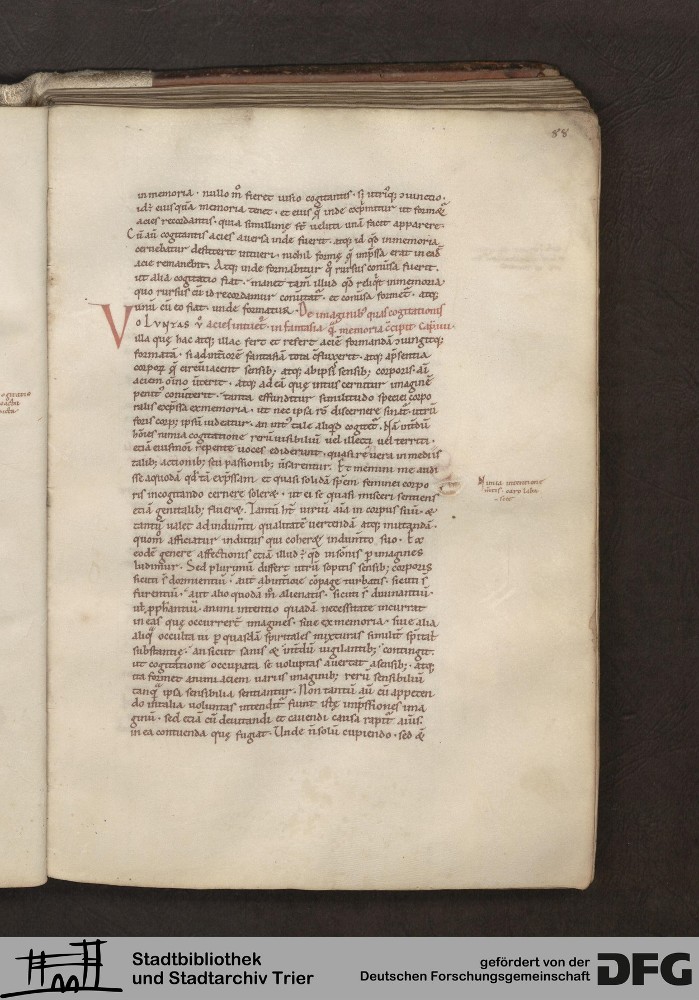 88
in memoria · nullo m̊ fieret uisio cogitantis · s; utriq; ↄiunctio ·
id ÷ eius quā memoria tenet · et eius q̄ inde exp̄mitur ut formet̄
acies recordantis · quia simillimę st̄ ueluti unā facit apparere ·
Cū aū cogitantis acies auersa inde fuerit · atq; id qd̄ in memoria
cernebatur destiterit intueri · nichil formę q̄ imp̄ssa erat in eadē
acie remanebit · Atq; inde formabitur q̊ rursus conuersa fuerit ·
ut alia cogitatio fiat · manet tam̄ illud qd̄ reliq̇t in memoria
quo rursus cū id recordamur conuertat̄ · et conuersa formet̄ · atq;
unū cū eo fiat · unde formatur · De imaginib; quas cogitationis
VoLVNTAS ū acies intuet̄ · in fantasia q̄ memoria c̄cipit Cap̄ · iiii ·
illa quę hac atq; illac fert et refert aciē formandā ↄiungitq;
formatā · si ad interiorē fantasiā tota c̄fluxerit · atq; a p̄sentia
corporꝝ q̄ circūiacent sensib; atq; ab ipsis sensib; corporis · aī
aciem om̄ino uerterit · atq; ad eā quę intus cernitur imaginē
penit᷒ conuerterit · tanta effunditur similitudo speciei corpo
ralis exp̄ssa ex memoria · ut nec ipsa rō discernere sinat᷒ utrū
foris corp᷒ ipsū uideatur · an int᷒ tale aliqd̄ cogitet᷒ · Nā int̄dū
hōīes nimia cogitatione rerū uisibiliū uel illecti uel territi ·
etiā eiusmodi repente uoces ediderunt · quasi re uera in mediis
talib; actionib; seu passionib; uersarentur · Et memini me audi
sse a quodā qd̄ tā exp̄ssam et quasi solidā sp̄em feminei corpo
ris in cogitando cernere soleret · ut ei se quasi misceri sentiens
etiā genitalib; flueret · Tantū ht̄ uiriū aīa in corpus suū · et
tantū ualet ad indumti qualitatē uertendā atq; mutandā ·
quom̊ afficiatur indutus qui coheret indumto suo · Ex
eodē genere affectionis etiā illud ÷ qd̄ in somnis p̱ imagines
ludimur · Sed plurimū differt utrū sopitis sensib; corporis
sicuti s̄ dormientiū · aut ab interiore cōpage turbatis · sicuti s̄
furentiū · aut alio quodā m̊ alienatis · sicuti s̄ diuinantiū ·
uł p̱phantiū · animi intentio quadā necessitate incurrat
in eas quę occurrerēt imagines · siue ex memoria · siue alia
aliq̄ occulta ui p̱ quasdā sp̄iritales mixturas similit᷒ sp̄italis
substantię · an sicut sanis et int̄dū uigilantib; contingit ·
ut cogitatione occupata se uoluptas auertat a sensib; · atq;
ita formet animi aciem uariis imaginib; rerū sensibiliū
tanq̄ ipsa sensibilia sentiantur · Non tantū aū cū appeten
do in talia uoluntas intendit᷒ fiunt istę imp̄ssiones ima
ginū · sed etiā cū deuitandi et cauendi causa rapit᷒ anim᷒
in ea contuenda quę fugiat · Unde ñ solū cupiendo · sed et
Nimia intentione
caro labi
Stadtbibliothek
und Stadtarchiv Trier
gefördert von der
Deutschen Forschungsgemeinschaft
DFG